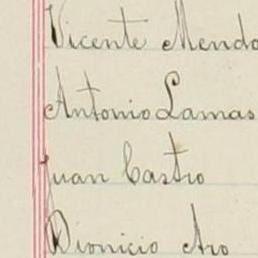 Vicente Mendo
Antonio Lamas
Juan Castro
Dionicio Aro